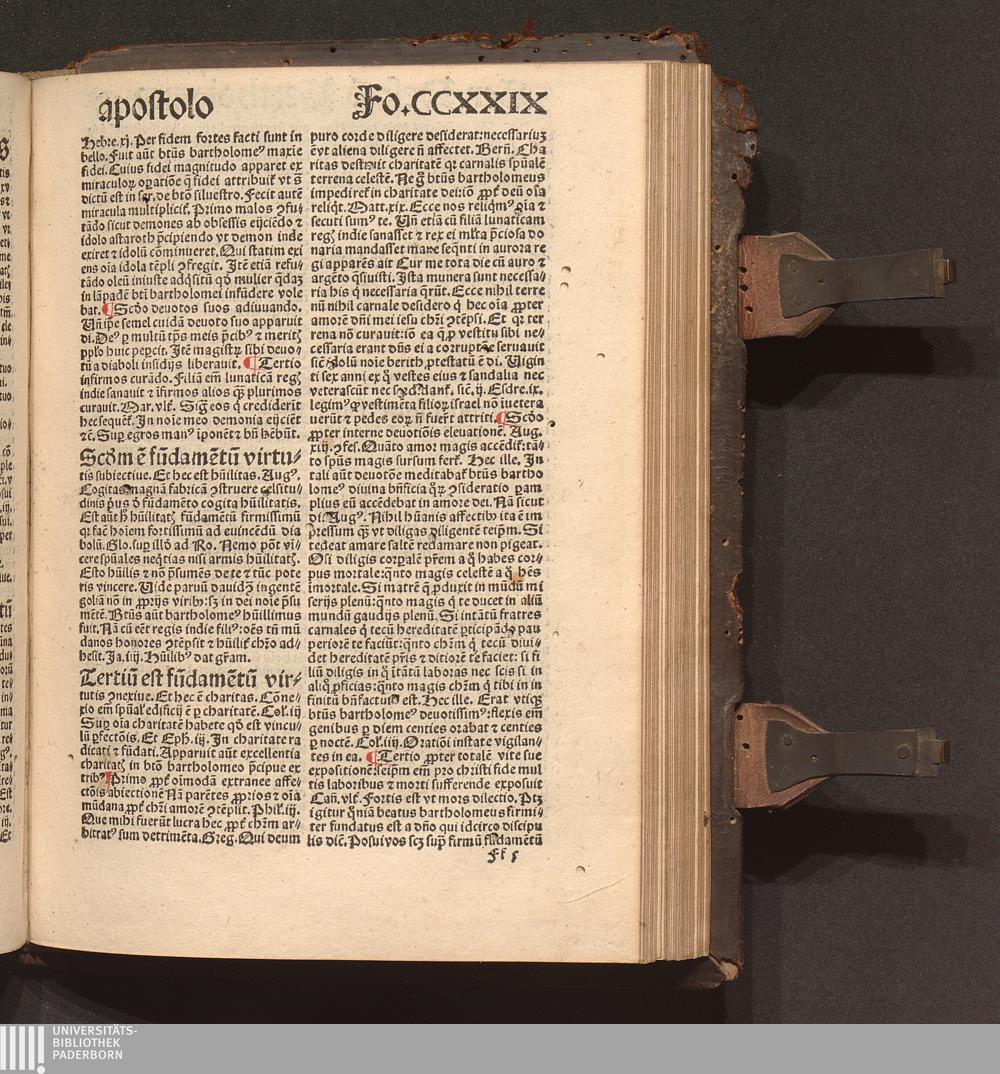 apostolo
Fo.CCXXIX
Hebre.xj. Per fidem fortes facti sunt in
bello. Fuit aūt btūs bartholomeꝰ maxīe
fidei. Cuius fidei magnitudo apparet ex
miraculoꝝ oꝑatiōe q̄ fidei attribuiť vt s̄
dictū est in ẜ de btō siluestro. Fecit autē
miracula multipliciť. Primo malos ꝯfu⸗
tādo sicut demones ab obsessis eijciēdo ⁊
idolo astaroth p̄cipiendo vt demon inde
exiret ⁊ idolū cōminueret. Qui statim exi
ens oīa idola tēpli ꝯfregit. Itē etiā refu⸗
tādo oleū iniuste adq̄sitū qd̓ mulier q̄daʒ
in lāpadē btī bartholomei infūdere vole
bat. ¶ Scd̓o deuotos suos adiuuando.
Uñ ip̄e semel cuidā deuoto suo apparuit
di. Deꝰ ꝑ multū tp̄s meis p̄cibꝰ ⁊ meritꝭ
pplo huic peꝑcit. Itē magistꝝ sibi deuo⸗
tū a diaboli insidijs liberauit. ¶ Tertio
infirmos curādo. Filiā em̄ lunaticā regꝭ
indie sanauit ⁊ ifirmos alios q̄ꝫ plurimos
curauit. Mar. vlť. Siḡ eos q̄ crediderīt
hec sequēť. In noīe meo demonia eijciēt
⁊c̄. Suꝑ egros manꝰ iponēt ⁊ bn̄ hēbūt.
Scd̓m ē fūdamētū virtu⸗
tis subiectiue. Et hec est hūilitas. Augꝰ.
Cogitas magnā fabricā ꝯstruere celsitu⸗
dinis pꝰus d̓ fūdamēto cogita hūilitatis.
Est aūt h̓ hūilitatꝭ fūdamētū firmissimū
qꝛ faē hoiem fortissimū ad euincēdū dia
bolū. Glo. suꝑ illo ad Ro. Nemo pōt vi⸗
cere spūales neq̄tias nisi armis hūilitatꝭ.
Esto hūilis ⁊ nō p̄sumēs de te ⁊ tūc pote
ris vincere. Uide paruū dauidꝫ ingentē
goliā nō in ꝓprijs viribꝰ: sꝫ in dei noīe p̄su
mētē. Btūs aūt bartholomeꝰ hūillimus
fuit. Nā cū eēt regis indie filiꝰ: oēs tn̄ mū
danos honores ꝯtēpsit ⁊ hūiliť chr̄o ad⸗
hesit. Ja. iiij. Hūilibꝰ dat gr̄am.
Tertiū est fūdamētū vir⸗
tutis ꝯnexiue. Et hec ē charitas. Cōne⸗
xio em̄ spūaľ edificij ē ꝑ charitatē. Col. iij
Suꝑ oīa charitatē habete qd̓ est vincu⸗
lū ꝑfectōis. Et Eph. iij. In charitate ra
dicati ⁊ fūdati. Apparuit aūt excellentia
charitatꝭ in btō bartholomeo p̄cipue ex
tribꝰ ¶ Primo ꝓpť oīmodā extranee affe⸗
ctōis abiectionē Nā parētes ꝓprios ⁊ oīa
mūdana ꝓpť chr̄i amorē ꝯtēpsit. Phil. iij.
Que mihi fuerūt lucra hec ꝓpť chr̄m ar⸗
bitratꝰ sum detrimēta. Greg. Qui deum
puro corde diligere desiderat: necessariuꝫ
ē vt aliena diligere n̄ affectet. Bern̄. Cha
ritas destruit charitatē qꝛ carnalis spūalē
terrena celestē. Ne g̊ btūs bartholomeus
impediret in charitate dei: iō ꝓpť deū oīa
reliq̇t. Matt. xix. Ecce nos reliq̇mꝰ oīa ⁊
secuti sumꝰ te. Uñ etiā cū filiā lunaticam
regꝭ indie sanasset ⁊ rex ei mľta p̄ciosa do
naria mandasset mane seq̄nti in aurora re
gi apparēs ait Cur me tota die cū auro ⁊
argēto q̄siuisti. Ista munera sunt necessa⸗
ria his q̇ necessaria q̄rūt. Ecce nihil terre
nū nihil carnale desidero q̇ hec oīa ꝓpter
amorē dn̄i mei iesu chr̄i ꝯtēpsi. Et qꝛ ter
rena nō curauit: iō ea q̄ ꝓ vestitu sibi ne⸗
cessaria erant dn̄s ei a corruptōe seruauit
sic̄ idolū noīe berith ꝓtestatū ē di. Uigin
ti sex anni ex q̊ vestes eius ⁊ sandalia nec
veterascūt nec sordidanť. sic̄. ij. Esdre. ix.
legimꝰ q̊ vestimēta filioꝝ israel nō īuetera
uerūt ⁊ pedes eoꝝ n̄ fuerūt attriti. ¶ Scd̓o
ꝓpter interne deuotiōis eleuationē. Aug.
xiij. ꝯfes. Quāto amor magis accēdiť: tā⸗
to spūs magis sursum ferť. Hec ille. In
tali aūt deuotōe meditabať btūs bartho
lomeꝰ diuina bn̄ficia q̊ꝝ ꝯsideratio ꝑam
plius eū accēdebat in amore dei. Nā sicut
di. Augꝰ. Nihil hūanis affectibꝫ ita ē im
pressum q̄ꝫ vt diligas diligentē teip̄m. Si
tedeat amare saltē redamare non pigeat.
O si diligis corꝑalē pr̄em a q̊ habes cor⸗
pus mortale: q̄nto magis celestē a q̊ hēs
īmortale. Si matrē q̄ ꝓduxit in mūdū mi
serijs plenū: q̄nto magis q̇ te ducet in aliū
mundū gaudijs plenū. Si intātū fratres
carnales q̇ tecū hereditatē ꝑticipādo pau
periorē te faciūt: q̄nto chr̄m q̇ tecū diui⸗
det hereditatē pr̄is ⁊ ditiorē te faciet: si fi⸗
liū diligis in q̊ ītātū laboras nec scis si in
aliq̊ ꝓficias: q̄nto magis chr̄m q̇ tibi in in
finitū bn̄factuꝰ est. Hec ille. Erat vtiqꝫ
btūs bartholomeꝰ deuotissimꝰ: flexis em̄
genibus ꝑ diem centies orabat ⁊ centies
ꝑ noctē. Coľ. iiij. Orationi instate vigilan⸗
tes in ea. ¶ Tertio ꝓpter totalē vite sue
expositionē: seip̄m em̄ pro christi fide mul
tis laboribus ⁊ morti sufferende exposuit
Cañ. vlť. Fortis est vt mors dilectio. Ptꝫ
igitur q̄niā beatus bartholomeus firmi⸗
ter fundatus est a dn̄o qui idcirco discipu
lis dic̄. Posui vos scꝫ suꝑ firmū fūdamētū
Ff 5
UNIVERSITÄTS-
BIBLIOTHEK
PADERBORN